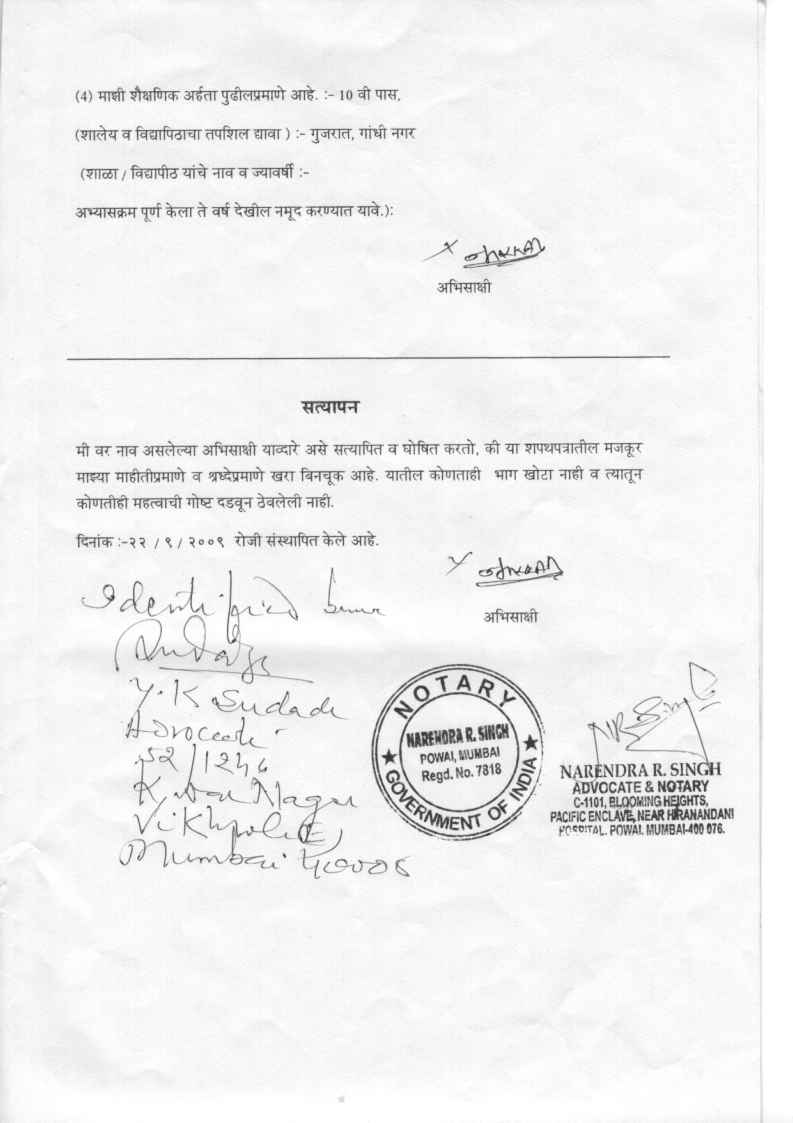 (4) माझी शैक्षणिक अर्हता पुढीलप्रमाणे आहे. :- 10 वी पास,
(शालेय व विद्यापिठाचा तपशिल द्यावा ) :- गुजरात, गांधी नगर
(शाळा / विद्यापीठ यांचे नाव व ज्यावर्षी :-
अभ्यासक्रम पूर्ण केला ते वर्ष देखील नमूद करण्यात यावे.):
X
अभिसाक्षी
सत्यापन
मी वर नाव असलेल्या अभिसाक्षी याव्दारे असे सत्यापित व घोषित करतो, की या शपथपत्रातील मजकूर
माझ्या माहीतीप्रमाणे व श्रध्देप्रमाणे खरा बिनचूक आहे. यातील कोणताही भाग खोटा नाही व त्यातून
कोणतीही महत्वाची गोष्ट दडवून ठेवलेली नाही.
दिनांक :-२२ / ९ / २००९ रोजी संस्थापित केले आहे.
अभिसाक्षी
Identified
Y. K Sudade
Advocate
52/1246
Nagar
Vikhroli (E)
Mumbai
NOTARY
NARENDRA R. SINGH
POWAI, MUMBAI
Regd. No. 7818
GOVERNMENT OF INDIA
NARENDRA R. SINGH
ADVOCATE & NOTARY
C-1101, BLOOMING HEIGHTS,
PACIFIC ENCLAVE, NEAR HIRANANDANI
HOSPITAL, POWAI, MUMBAI-400 076.